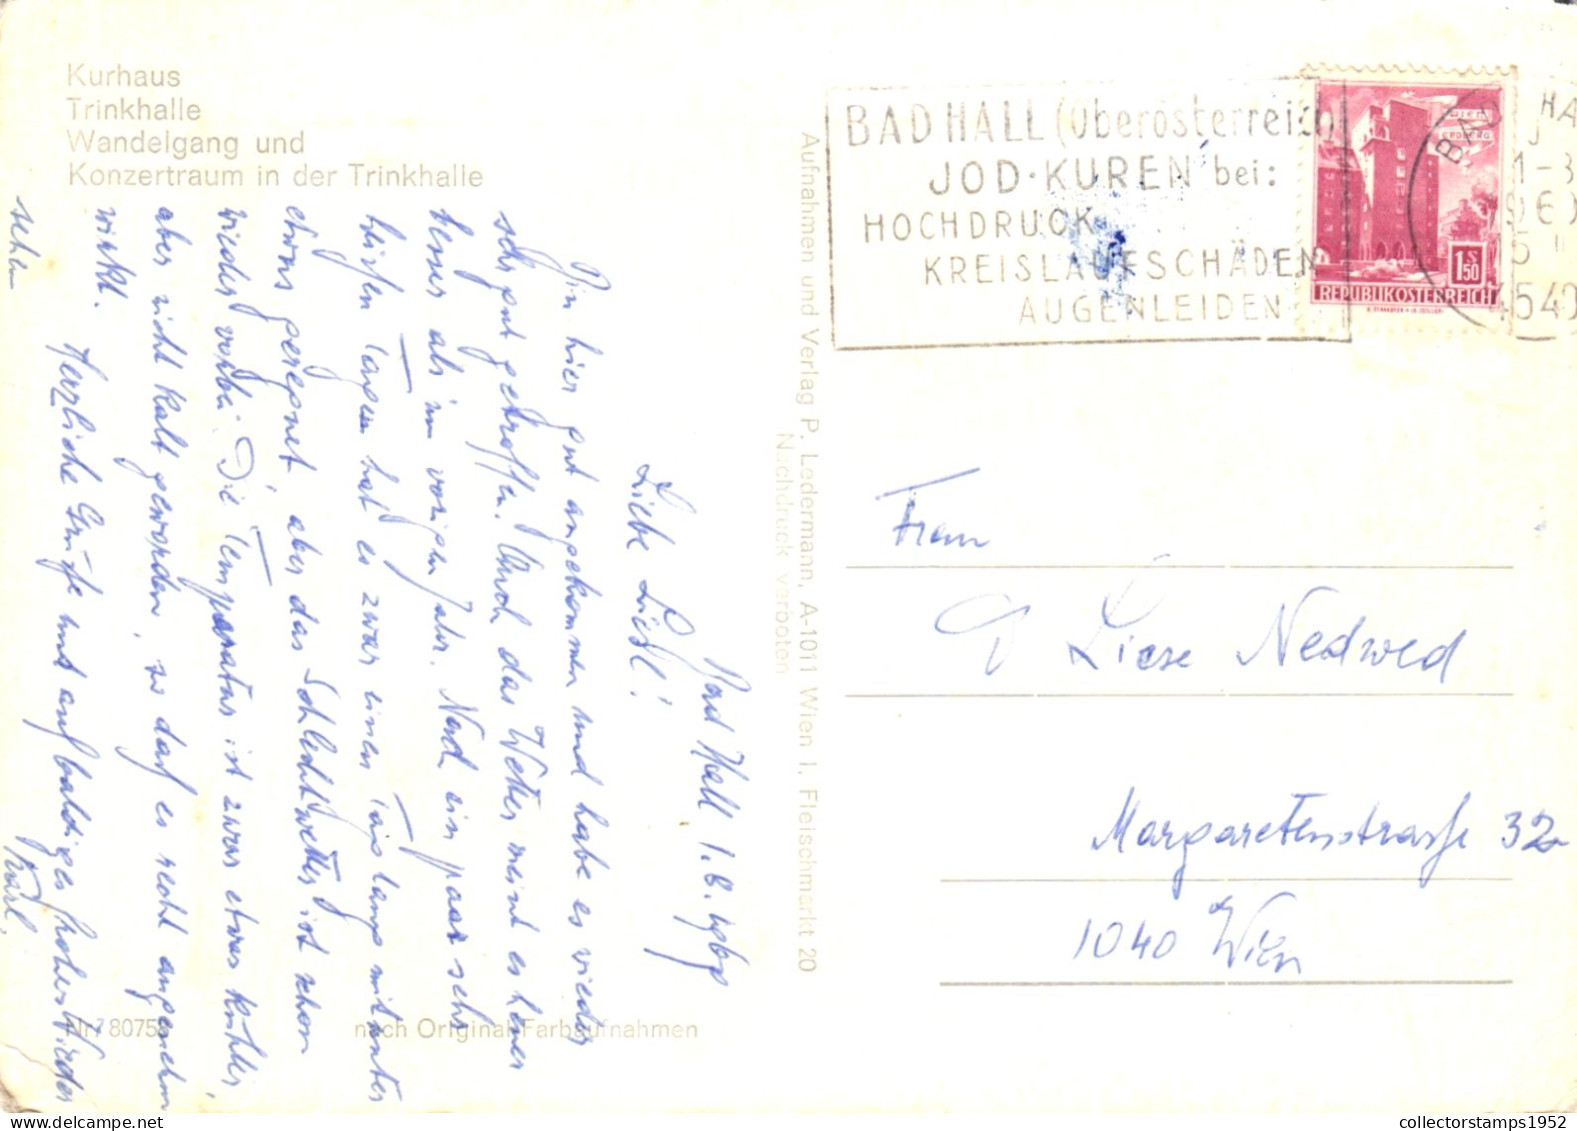 Kurhaus
Trinkhalle
Wandelgang und
Konzertraum in der Trinkhalle
Bad Hall 1.8.1969
Liebe Liesl!
Bin hier gut angekommen und habe es wieder
sehr gut getroffen. Auch das Wetter meint es heuer
besser als im vorigen Jahr. Nach ein paar sehr
heißen Tagen hat es zwar einen Tag lang mitunter
etwas geregnet, aber das Schlechtwetter ist schon
wieder vorbei. Die Temperatur ist zwar etwas kühler,
aber nicht kalt geworden, so daß es recht angenehm
wirkt.
Herzliche Grüße und auf baldiges frohes Wieder
sehen
Karl.
Nr. 8075
nach Original-Farbaufnahmen
Aufnahmen und Verlag P. Ledermann, A-1011 Wien I. Fleischmarkt 20
Nachdruck verboten
BAD HALL (Oberösterreich)
JOD-KUREN bei:
HOCHDRUCK
KREISLAUFSCHÄDEN
AUGENLEIDEN
WIEN
ERDBERG
1 S 50
REPUBLIK ÖSTERREICH
BAD HA
4540
Frau
Liese Nedwed
Margaretenstraße 32
1040 Wien
collectorstamps1952